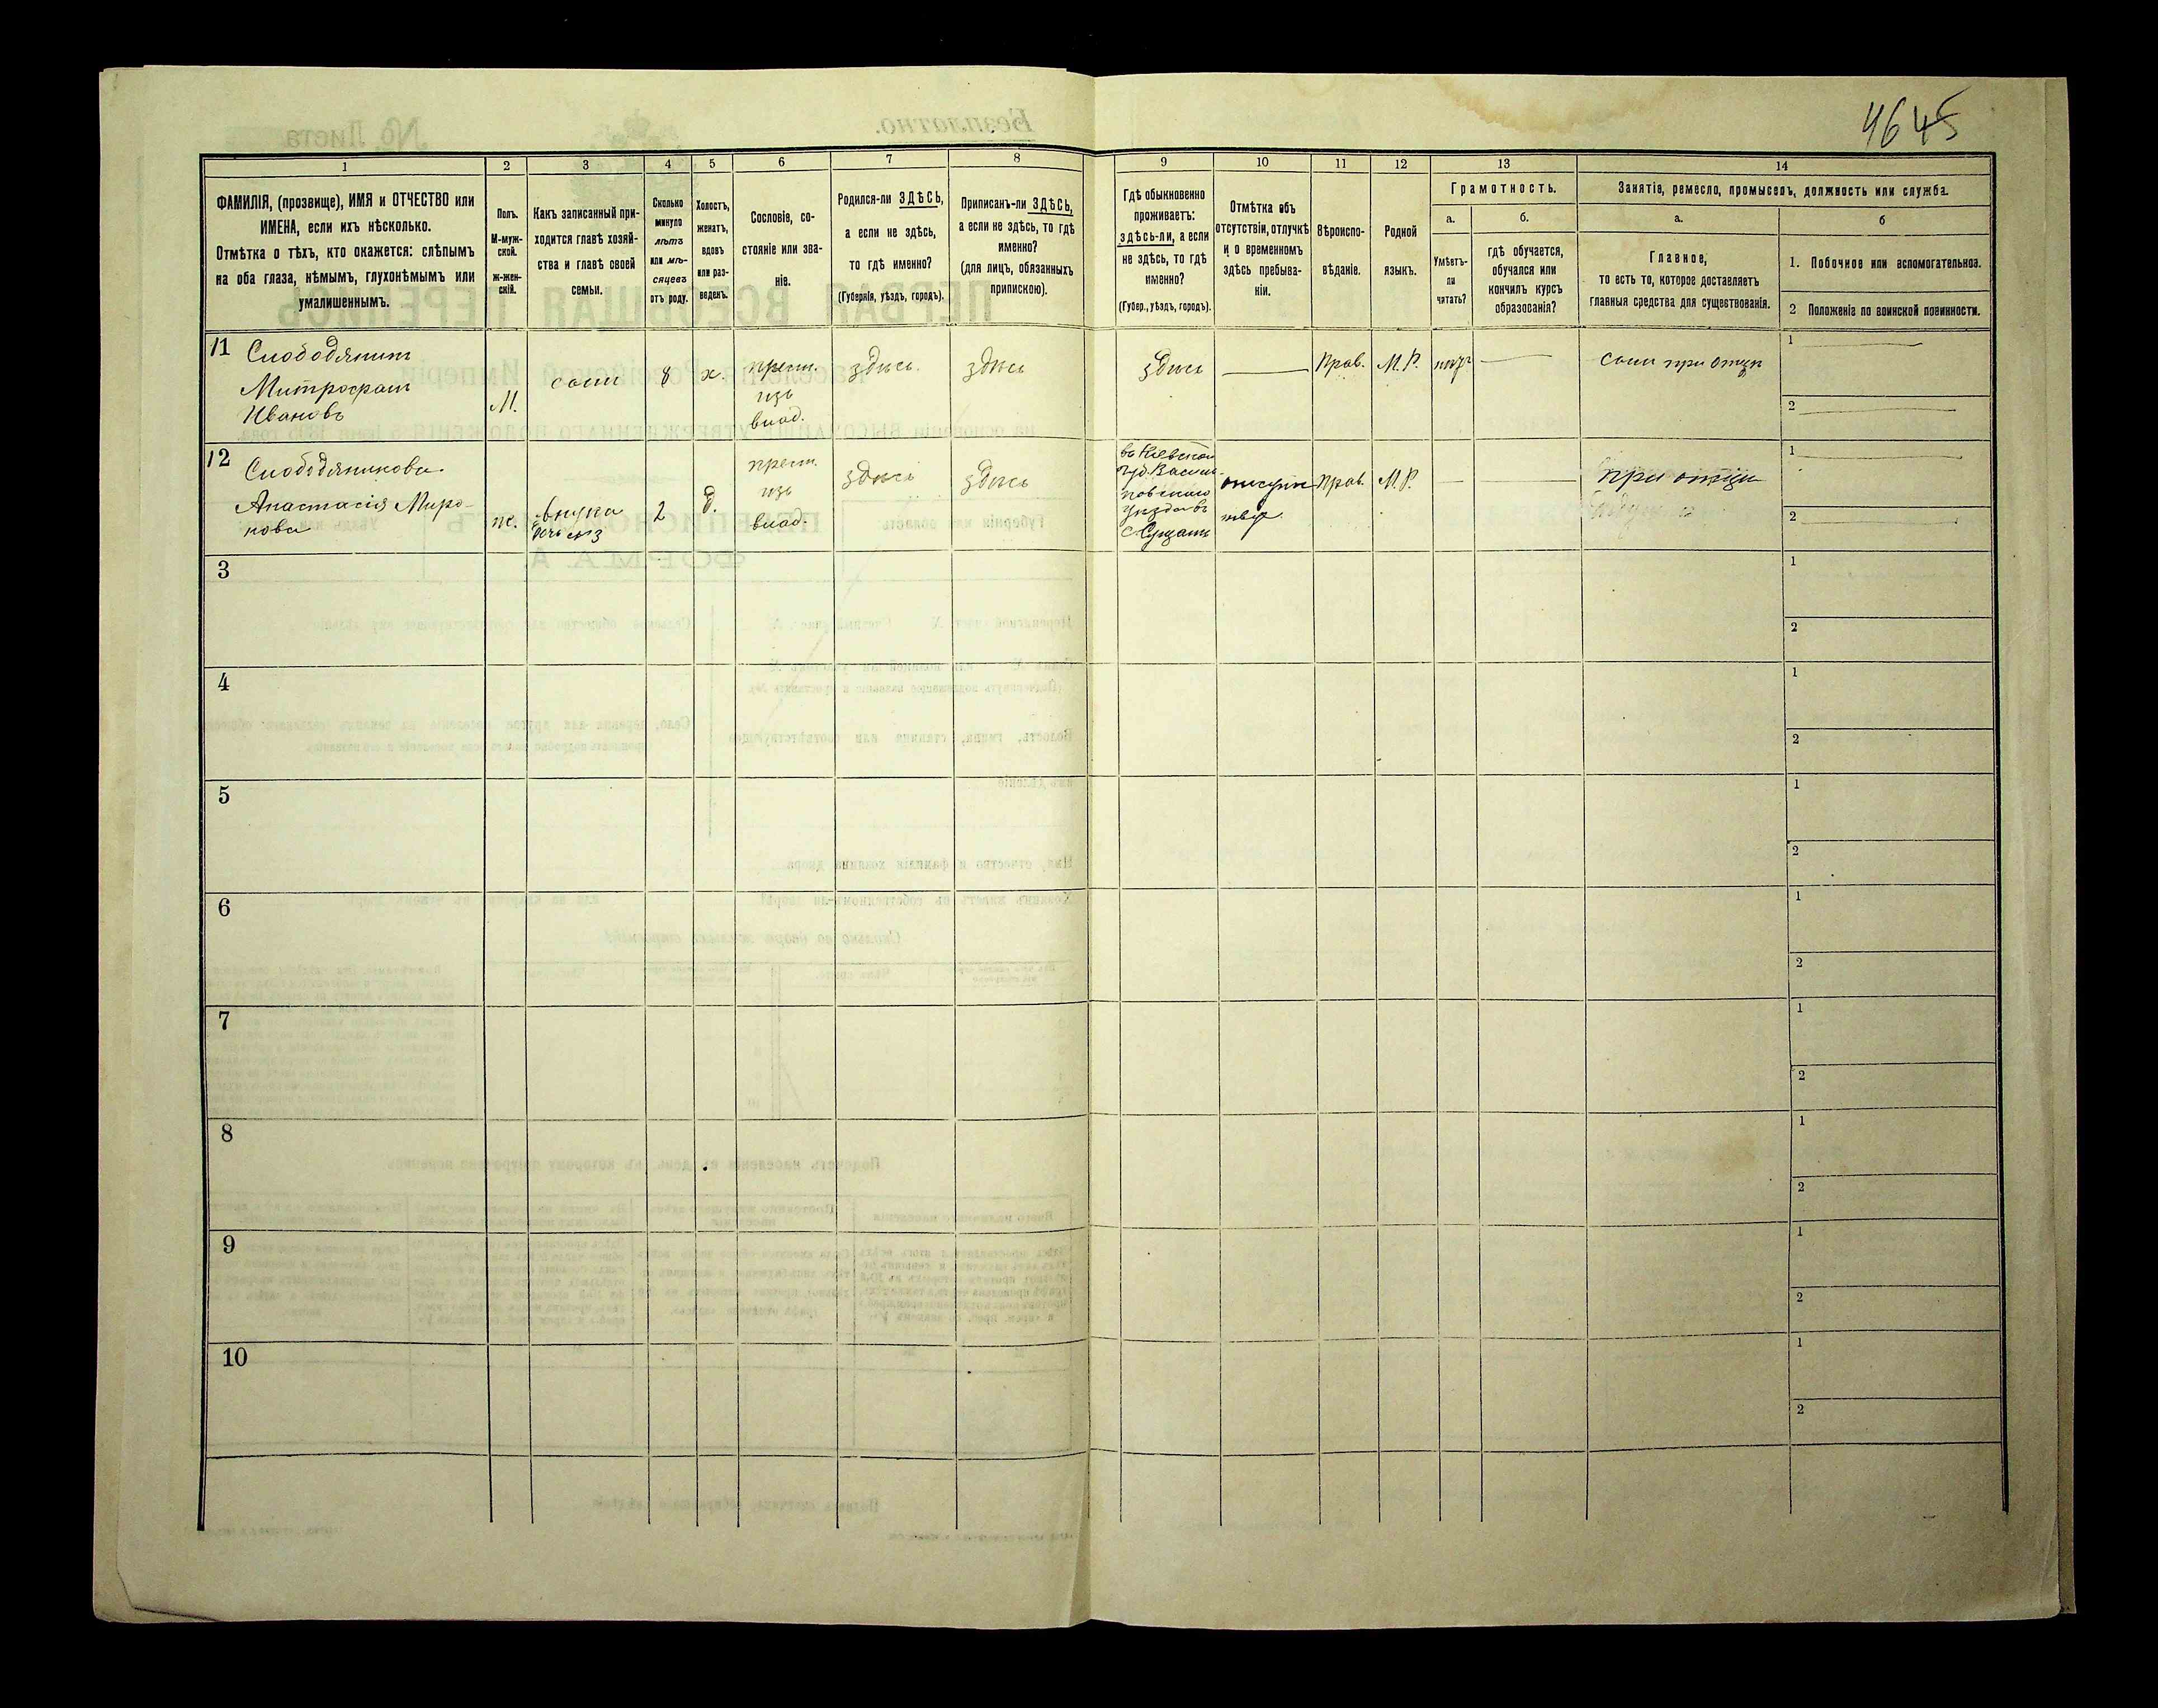 4645
1 2 3 4 5 6 7 8 9 10 11 12 13 14
ФАМИЛІЯ, (прозвище), ИМЯ и ОТЧЕСТВО или
ИМЕНА, если ихъ нѣсколько.
Отмѣтка о тѣхъ, кто окажется: слѣпымъ
на оба глаза, нѣмымъ, глухонѣмымъ или
умалишеннымъ.
Полъ.
М-муж-
ской.
Ж-жен-
скій.
Какъ записанный при-
ходится главѣ хозяй-
ства и главѣ своей
семьи.
Сколько
минуло
лѣтъ
или мѣ-
сяцевъ
отъ роду.
Холостъ,
женатъ,
вдовъ
или раз-
веденъ.
Сословіе, со-
стояніе или зва-
ніе.
Родился-ли ЗДѢСЬ,
а если не здѣсь,
то гдѣ именно?
(Губернія, уѣздъ, городъ).
Приписанъ-ли ЗДѢСЬ,
а если не здѣсь, то гдѣ
именно?
(для лицъ, обязанныхъ
припискою).
Гдѣ обыкновенно
проживаетъ:
здѣсь-ли, а если
не здѣсь, то гдѣ
именно?
(Губер., уѣздъ, городъ).
Отмѣтка объ
отсутствіи, отлучкѣ
и о временномъ
здѣсь пребыва-
ніи.
Вѣроиспо-
вѣданіе.
Родной
языкъ.
Грамотность.
а.
Умѣетъ-
ли
читать?
б.
гдѣ обучается,
обучался или
кончилъ курсъ
образованія?
Занятіе, ремесло, промыселъ, должность или служба.
а.
Главное,
то есть то, которое доставляетъ
главныя средства для существованія.
б
1. Побочное или вспомогательное.
2 Положеніе по воинской повинности.
11 Слободяникъ
Митрофанъ
Ивановъ
М.
сынъ
8
х.
крест.
изъ
влад.
здѣсь
здѣсь
здѣсь
Прав.
М.Р.
нѣтъ
сынъ при отцѣ
1
2
12 Слободяникова
Анастасія Миро-
нова
ж.
внука
дочь
2
д.
крест.
изъ
влад.
здѣсь
здѣсь
въ Кіевской
губ. Василь-
ковскаго
уѣзда въ
Прав.
М.Р.
при отцѣ
1
2
3
1
2
4
1
2
5
1
2
6
1
2
7
1
2
8
1
2
9
1
2
10
1
2